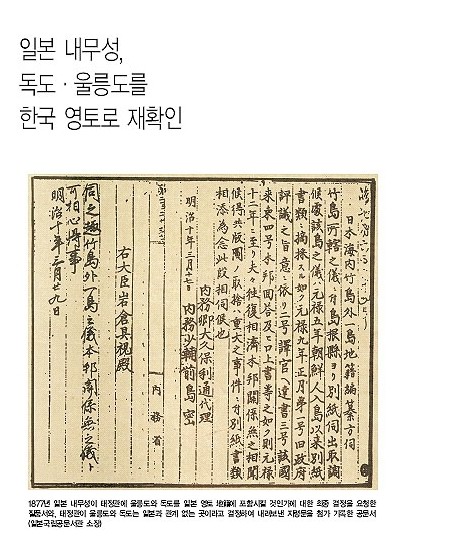 일본 내무성,
독도 · 울릉도를
한국 영토로 재확인
日本海内竹島外一島地籍編纂方伺
竹島所轄之儀ニ付島根縣ヨリ別紙伺出取調
候處該島之儀ハ元禄五年朝鮮人入島以来別紙
書類ニ摘採スル如ク元禄九年正月第一号旧政府
評議之旨意ニ依リ二号譯官ヘ達書三号該國
来柬四号本邦回答及ヒ口上書等之如ク則元禄
十二年ニ至リ夫々往復相濟本邦関係無之相聞
候得共版圖ノ取捨ハ重大之事件ニ付別紙書類
相添為念此段相伺候也
明治十年三月十七日
内務卿大久保利通代理
内務少輔前島密
右大臣岩倉具視殿
内務省
伺之趣竹島外一島之儀本邦関係無之儀ト
可相心得事
明治十年三月廿九日
1877년 일본 내무성이 태정관에 울릉도와 독도를 일본 영토 地籍에 포함시킬 것인가에 대한 최종 결정을 요청한
질품서와, 태정관이 울릉도와 독도는 일본과 관계 없는 곳이라고 결정하여 내려보낸 지령문을 첨가 기록한 공문서
(일본국립공문서관 소장)